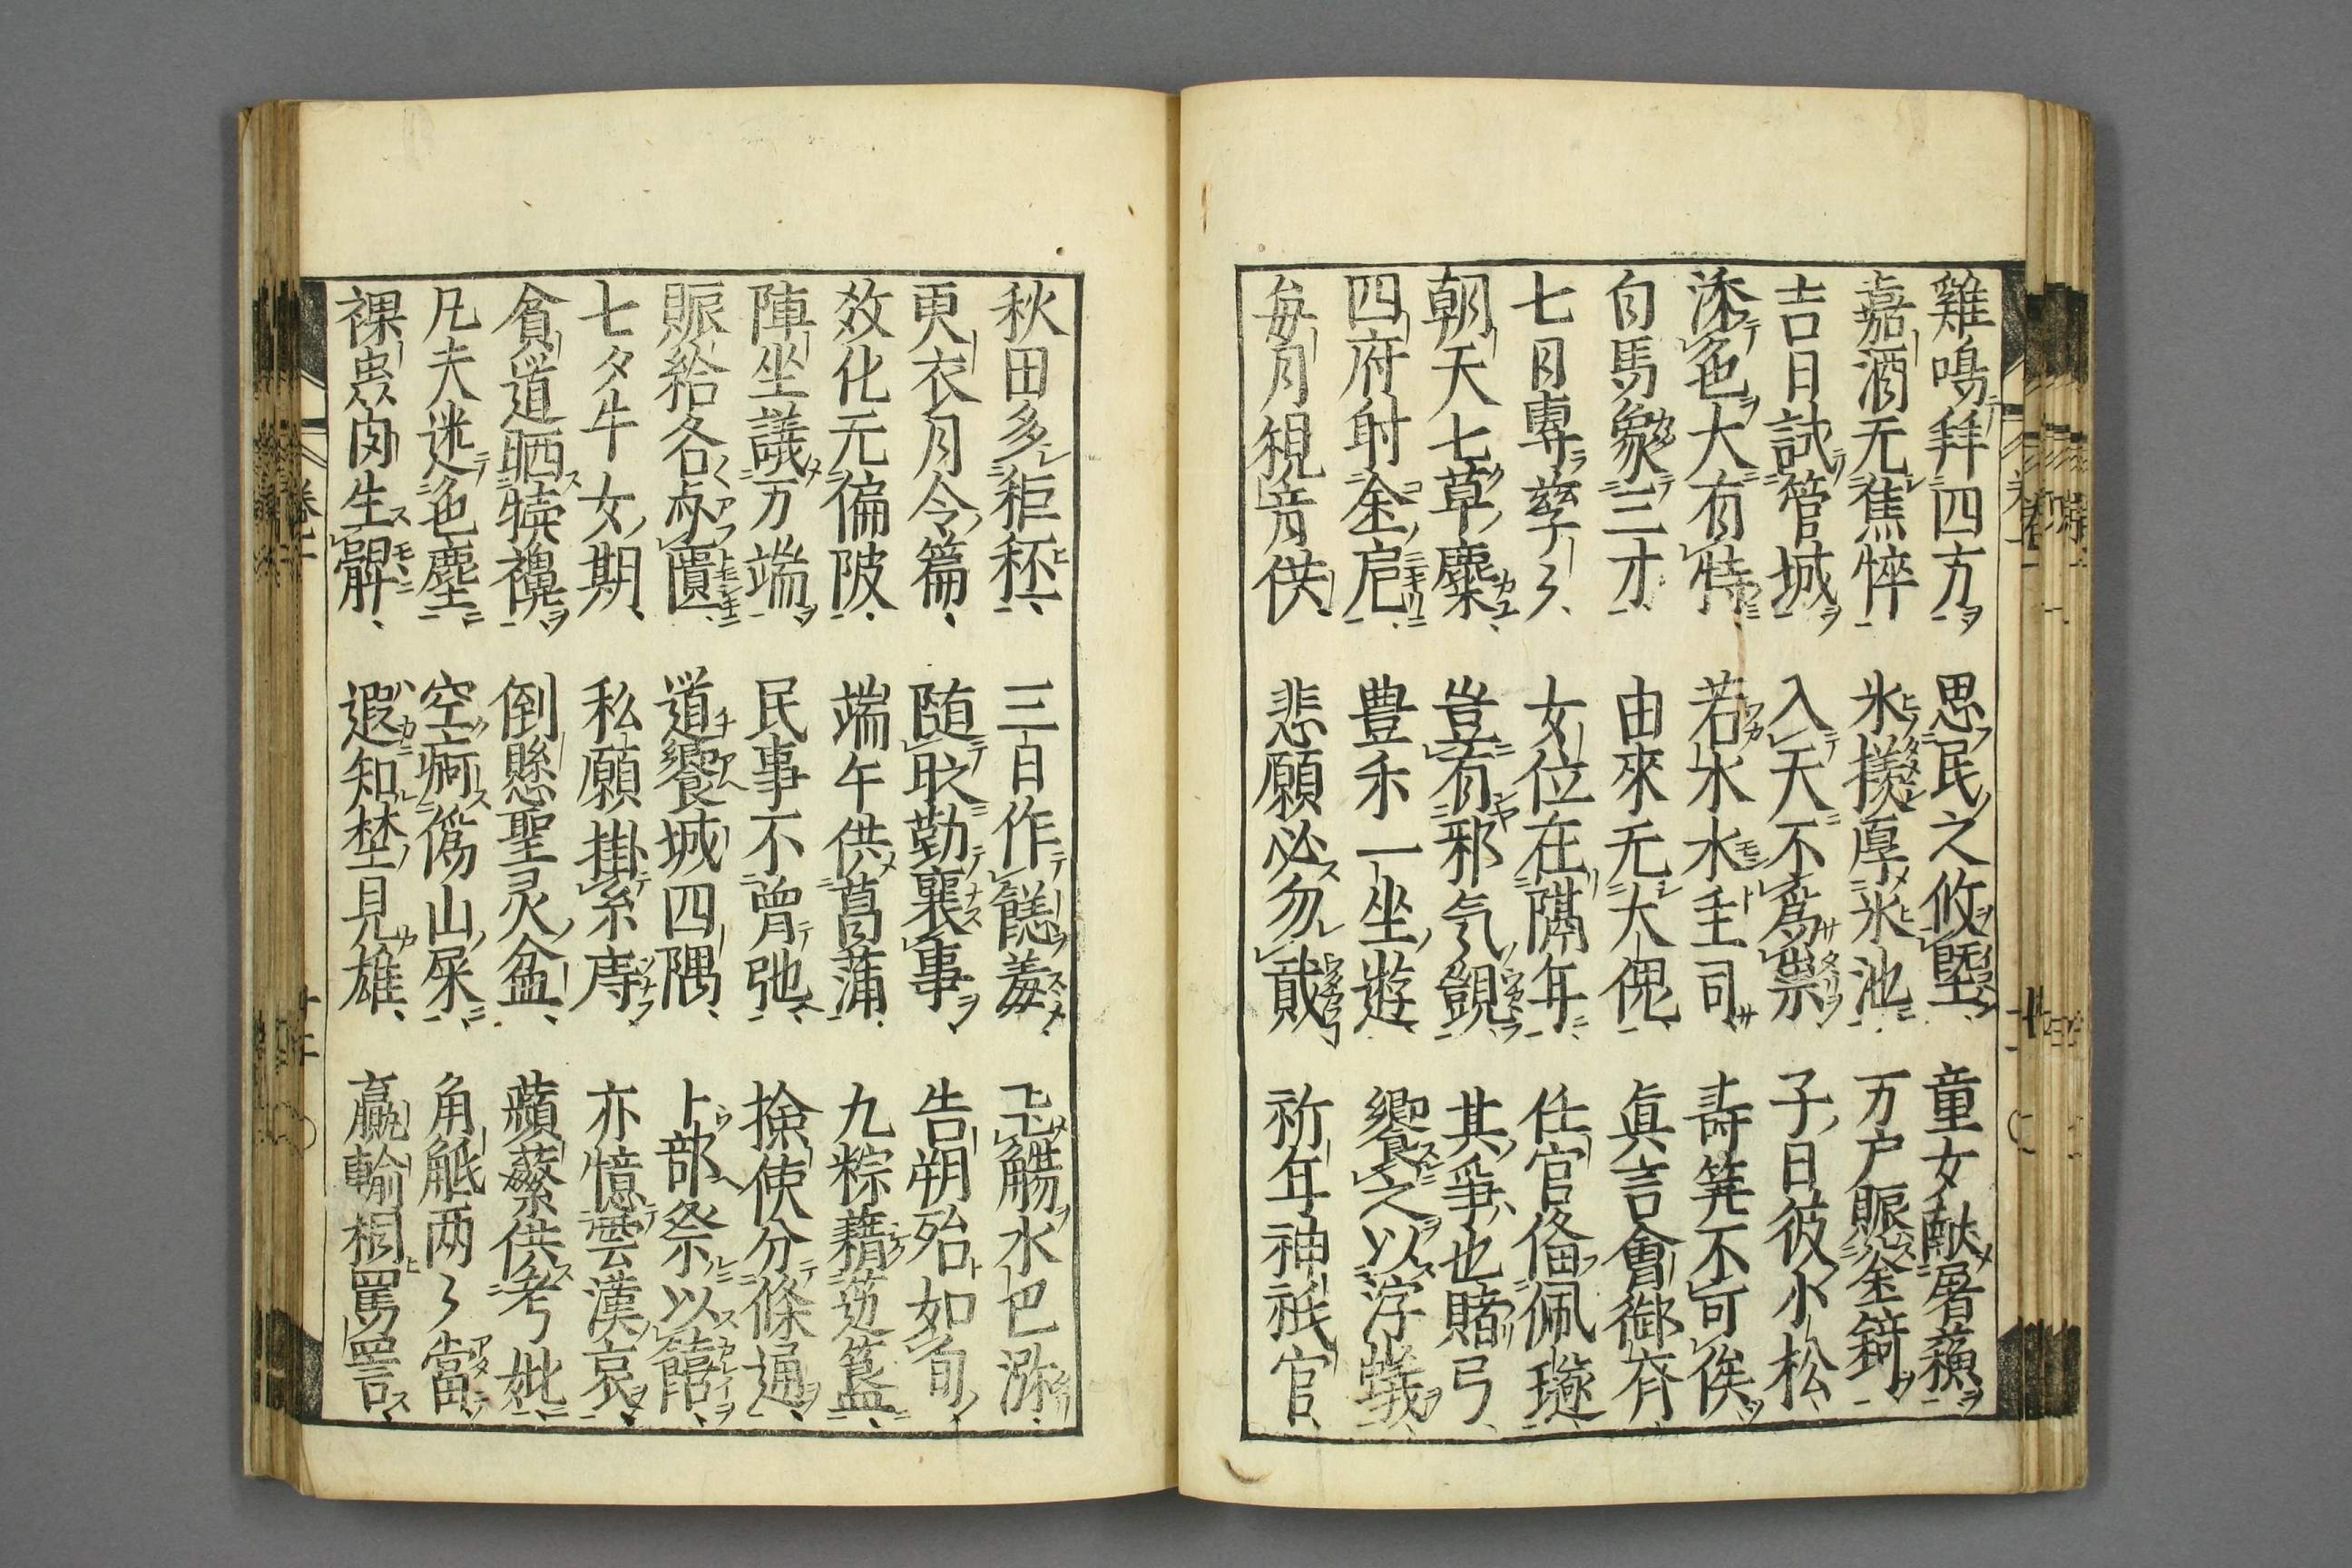 雞鳴拜四方 思民之攸塈 童女献屠蘓
嘉酒无焦悴 氷様厚氷池 万户賑金錡
吉日試管城 入天不為祟 子日彼小松
添色大有特 若水水主司 壽筭不可俟
白馬象三才 由來无大傀 眞言會御斉
七日專孳〻 女位在隔年 任官俻佩璲
朝天七草糜 豈有邪气覬 其爭也賭弓
四府射金卮 豊禾一坐遊 饗之以浮蟻
毎月観音供 悲願必勿貳 祈年神祇官
秋田多秬秠 三日作餻羞 羽觴水巴
更衣月令篇 随敢勤襄事 告朔殆如旬
效化元偏陂 端午供菖蒲 九粽藉簋
陣坐議万端 民事不曽弛 撿使分條通
賑給各尓匱 道饗城四隅 卜部祭以饎
七夕牛女期 私願掛糸庤 亦憶雲漢哀
貪道晒犢褌 倒懸聖灵盆 蘋蘩供考妣
凡夫迷色塵 空痾僞山屎 角觝两〻當
裸虫肉生髀 遐知埜見雄 贏輸相罵詈
卷二 十二